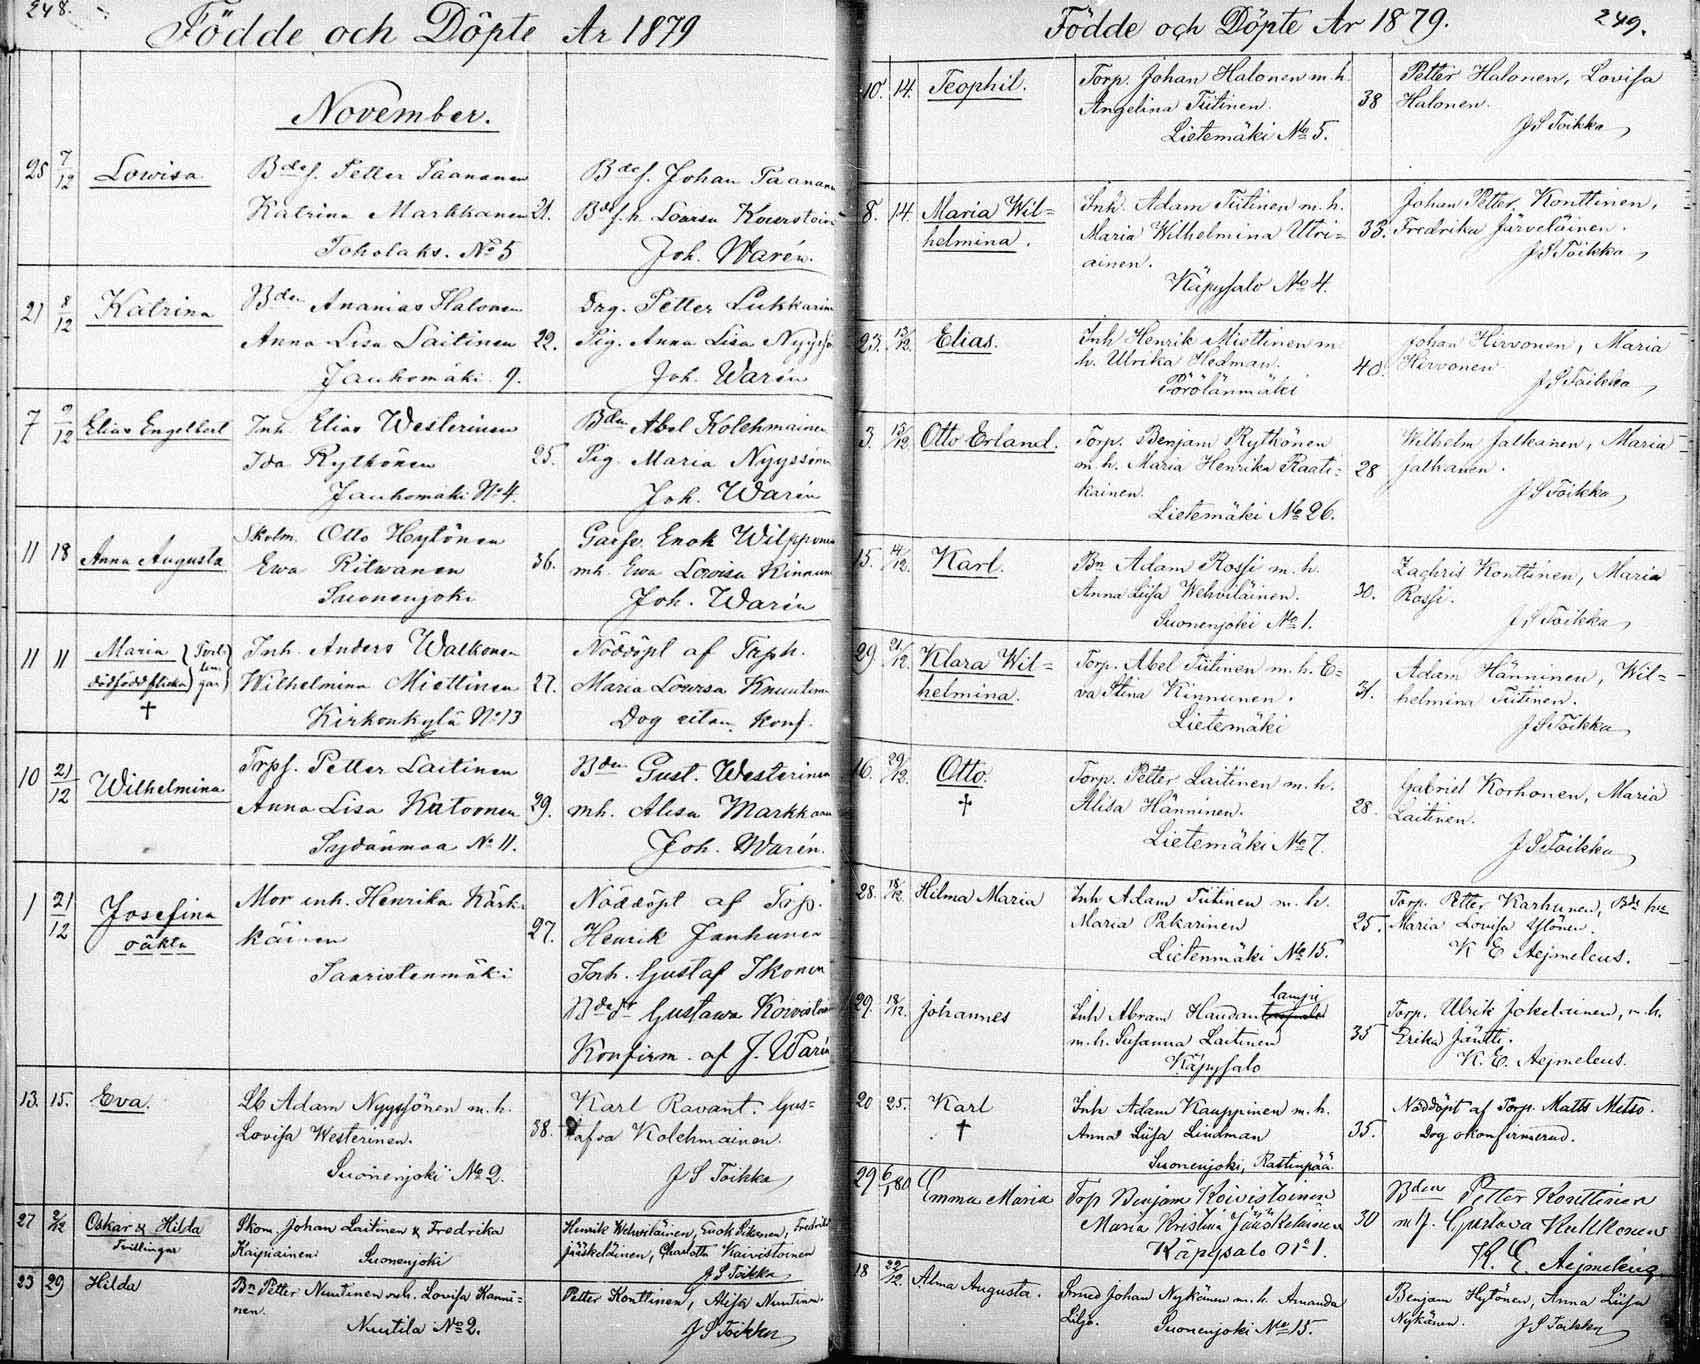 248.
Födde och Döpte År 1879
November.
25 7/12 Lowisa
Bdes. Petter Paananen
Katrina Markkanen 21.
Toholaks. No 5
Bdes. Johan Paananen
Bdes. h. Lowisa
Joh. Warén.
21 8/12 Katrina
Bden Ananias Halonen
Anna Lisa Laitinen 22.
Jauhomäki 9.
Drg. Petter Lukkarinen
Pig. Anna Lisa
Joh. Warén
7 9/12 Elias Engelbert
Inh. Elias Westerinen
Ida Rytkönen 25.
Jauhomäki No 4.
Bden Abel Kolehmainen
Pig. Maria Nyyssönen
Joh. Warén
11 18 Anna Augusta
Skolm. Otto Hytönen
Ewa Ritwanen 36.
Suonenjoki
Enok Wilpponen
mh. Ewa Lowisa Kinnunen
Joh. Warén
11 11 Maria
dödfödd flicka
†
Inh. Anders Walkonen
Wilhelmina Miettinen 27.
Kirkonkylä No 13
Nöddöpt af Trph.
Maria Lowisa
Dog utan konf.
10 21/12 Wilhelmina
Trps. Petter Laitinen
Anna Lisa Kutvonen 29.
No 11.
Bden Gust. Westerinen
mh. Alisa Markkanen
Joh. Warén.
1 21/12 Josefina
oäkta
Mor inh. Henrika Kärk-
käinen 27.
Saaristenmäki
Nöddöpt af Trp.
Henrik Janhunen
Inh. Gustaf Ikonen
Gustawa Koivistoinen
Konfirm. af J. Warén
13. 15. Eva.
Adam Nyyssönen m. h.
Lovisa Westerinen. 38.
Suonenjoki No 2.
Karl Ravant. Gus-
tafva Kolehmainen.
J S Toikka
27 2/12 Oskar & Hilda
Tvillingar
Skom. Johan Laitinen & Fredrika
Kaipiainen Suonenjoki
Henrik Wehviläinen, Enok Ikonen, Fredrika
Jääskeläinen, Charlotta Koivistoinen
J S Toikka
23 29 Hilda
Bn Petter Nuutinen o. h. Lovisa Kanni-
nen.
Nuutila No 2.
Petter Konttinen, Alisa Nuutinen.
J S Toikka
Födde och Döpte År 1879.
249.
10. 14. Teophil.
Torp. Johan Halonen m. h.
Angelina Tiitinen. 38
Lietemäki No 5.
Petter Halonen, Lovisa
Halonen.
J S Toikka
8. 14. Maria Wil-
helmina.
Inh. Adam Tiitinen m. h.
Maria Wilhelmina Utri- 33.
ainen.
Käpysalo No 4.
Johan Petter Konttinen,
Fredrika Järveläinen.
J S Toikka
23. 13/12. Elias.
Inh Henrik Miettinen m.
h. Ulrika Hedman. 40.
Pörölänmäki
Johan Hirvonen, Maria
Hirvonen
J S Toikka
3. 13/12. Otto Erland.
Torp. Benjam Rytkönen
m. h. Maria Henrika Raati- 28
kainen.
Lietemäki No 26.
Wilhelm Jalkanen, Maria
Jalkanen.
J S Toikka
15. 4/12. Karl.
Bn Adam Rossi m. h.
Anna Liisa Wehviläinen. 30.
Suonenjoki No 1.
Zachris Konttinen, Maria
Rossi.
J S Toikka
29 21/12. Klara Wil-
helmina.
Torp. Abel Tiitinen m. h. E-
va Stina Kinnunen. 31.
Lietemäki
Adam Hänninen, Wil-
helmina Tiitinen.
J S Toikka
16. 29/12. Otto.
†
Torp. Petter Laitinen m. h.
Alisa Hänninen. 28.
Lietemäki No 7.
Gabriel Korhonen, Maria
Laitinen.
J S Toikka
28. 18/12 Hilma Maria
Inh Adam Tiitinen m. h.
Maria Pakarinen 25.
Lietenmäki No 15.
Torp. Petter Karhunen, Bds hu
Maria Lovisa Ylönen.
K E Aejmeleus.
29. 18/12. Johannes
lampi
Inh Abram Haudan
m. h. Susanna Laitinen 35
Käpysalo
Torp. Ulrik Jokelainen, m. h.
Erika Jäntti.
K. E. Aejmeleus.
20 25. Karl
†
Inh Adam Kauppinen m. h.
Anna Liisa Lindman 35.
Suonenjoki, Rastinpää
Nöddöpt af Torp. Matts Metso.
Dog okonfirmerad.
29 6/1 80 Emma Maria
Torp Benjam Koivistoinen
Maria Kristina Jääskeläinen 30
Käpysalo No 1.
Bden Petter Konttinen
m h. Gustava Kukkonen
K. E. Aejmeleus
18 22/12. Alma Augusta.
Smed Johan Nykänen m. h. Amanda
Liljo. Suonenjoki No 15.
Benjam Hytönen, Anna Liisa
Nykänen. J S Toikka